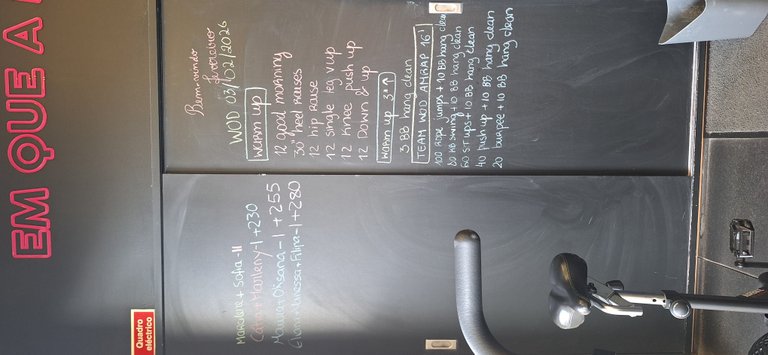 EM QUE A
Bem-vindo
fevereiro
WOD 03/02/2026
Warm up
12 good morning
30" heel raises
12 hip raise
12 single leg v up
12 knee push up
12 Down & up
Warm up 3* ↑
3 BB hang clean
TEAM WOD AMRAP 16'
100 Rope jumps + 10 BB hang clean
80 KB swing + 10 BB hang clean
60 sit ups + 10 BB hang clean
40 push up + 10 BB hang clean
20 burpee + 10 BB hang clean
+ Sofia - II
+ Marileny - I + 230
+ Oksana - I + 255
+ Vanessa + Filipa - I + 280
Quadro
eléctrico